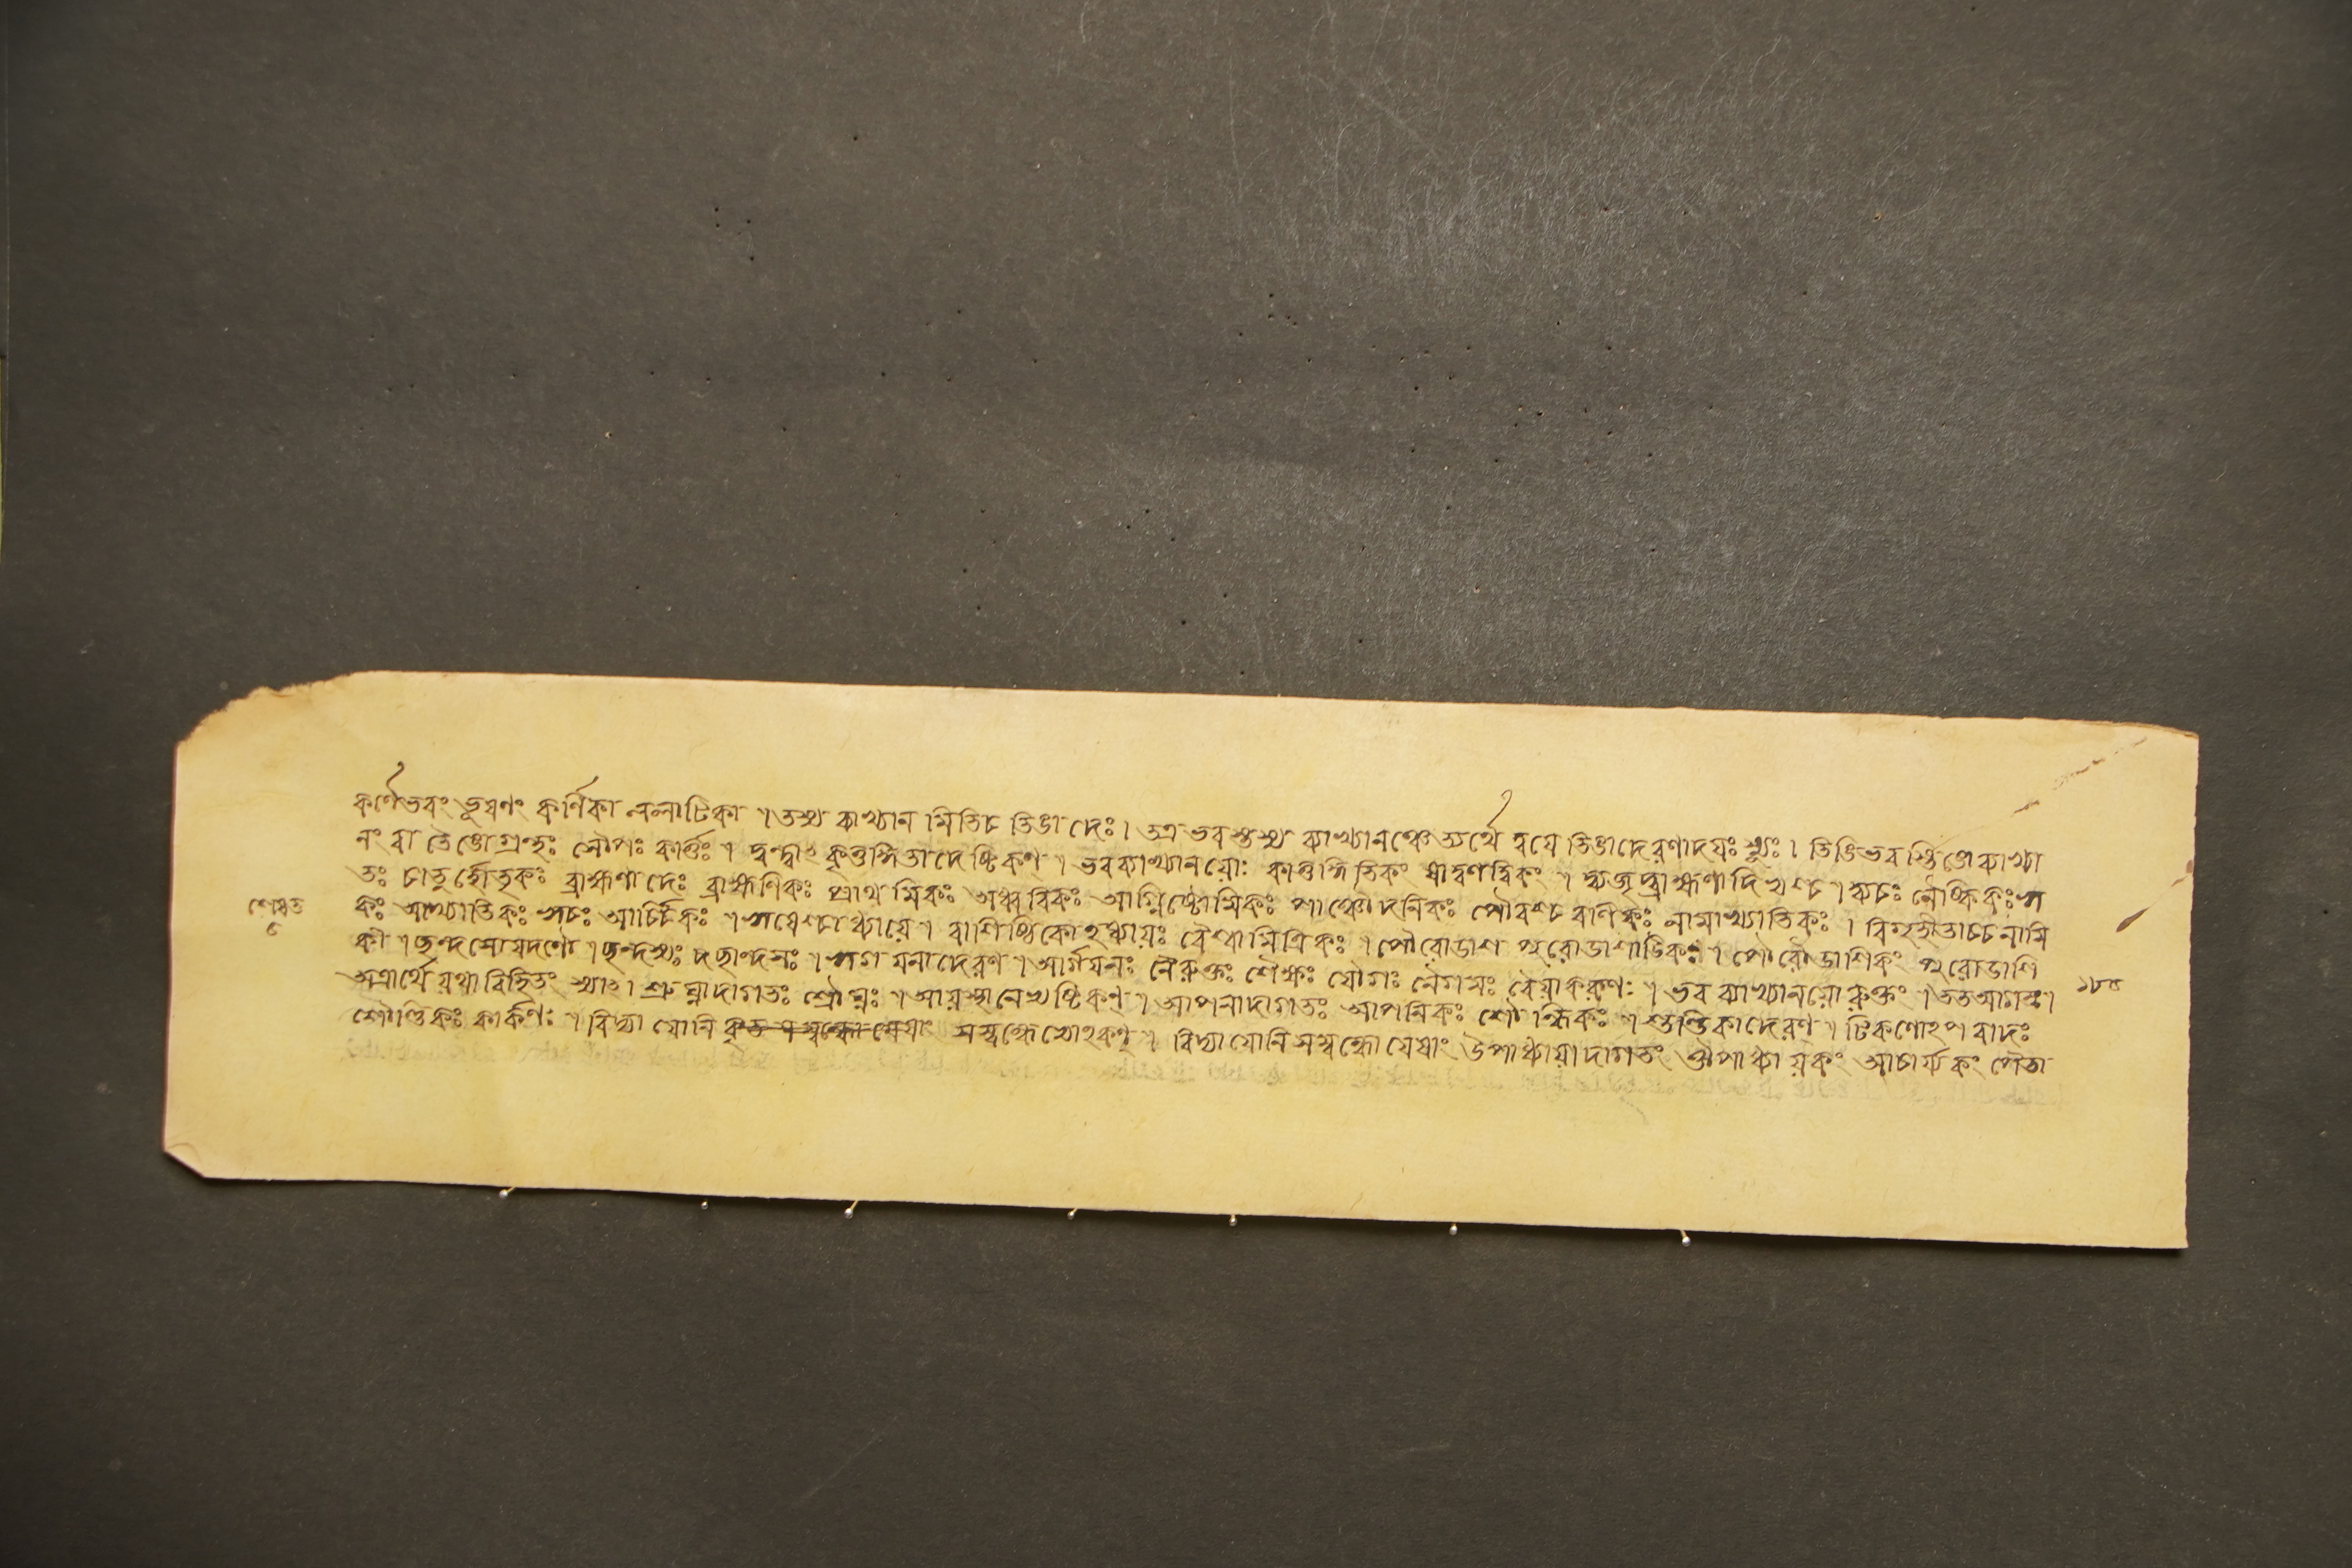 কর্ণেভবং ভূষণং কর্ণিকা ললাটিকা । তস্য ব্যাখ্যান মিতিচ তিঙা দেঃ । তত্র ভবস্তস্য ব্যাখ্যানঞ্চেত্যর্থে দ্বয়ে তিঙাদেরণাদয়ঃ স্যুঃ । তিঙিভব স্তিঙোব্যাখ্যা
নং বা তৈঙো গ্রন্থঃ সৌপঃ কার্ত্তঃ । দ্বন্দ্বাৎ কৃত্তদ্ধিতাদেষ্টিকণ্ । ভবব্যাখ্যানয়োঃ কাত্তদ্ধিতিকং ষাত্বণত্বিকং । দ্ব্যজৃদ্ব্রাহ্মণাদি খণ্চ । দ্ব্যচঃ
তঃ চাতুর্হোতৃকঃ ব্রাহ্মণাদেঃ ব্রাহ্মণিকঃ প্রাথমিকঃ অধ্বরিকঃ আগ্নিষ্টোমিকঃ পাঞ্চৌদনিকঃ নামাখ্যাতিকঃ । বিগৃহীতাচ্চ নামি
কঃ আখ্যাতিকঃ ঋচঃ আর্চ্চিকঃ । ঋষেশ্চাধ্যায়ে । বাশিষ্ঠিকোঽধ্যায়ঃ বৈশ্বামিত্রিকঃ । পৌরোডাশ পুরোডাশাট্টিকঃ । পৌরোডাশিকঃ পুরোডাশি
কী । ছন্দসোযদণৌ । ছন্দস্যঃ ছান্দসঃ । ঋগয়নাদেরণ্ । আর্গয়নঃ নৈরুক্তঃ শৈক্ষঃ যৌগঃ নৈগমঃ বৈয়াকরণঃ । ভব ব্যাখ্যানয়োরুক্তং । তত আগতঃ ।
অত্রার্থে যথাবিহিতং স্যাৎ । শ্রুঘ্নাদাগতঃ শ্রৌঘ্নঃ । আয়স্থানেখষ্টিকণ্ । আপনাদাগতঃ আপনিকঃ শৌল্কিকঃ । শুণ্ডিকাদেরণ্ । টিকণোঽপবাদঃ
শৌণ্ডিকঃ কার্কণঃ । বিদ্যা যোনি সম্বন্ধেখোঽকণ্ । বিদ্যাযোনিসম্বন্ধোযেষাং উপাধ্যায়াদাগতং ঔপাধ্যায়কং আচার্য্যকং পৈতা